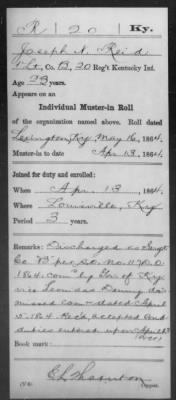 R | 20 | Ky.
Joseph N. Reid
Co. B, 20 Reg't Kentucky Inf.
Age 23 years.
Appears on an
Individual Muster-in Roll
of the organization named above. Roll dated
Lexington, Ky, May 16, 1864.
Muster-in to date Apr 13, 1864.
Joined for duty and enrolled:
When Apr. 13, 1864.
Where Louisville, Ky
Period 3 years.
Remarks: Discharged as Sergt
Co. B per S.O. No.
1864. com'd by Gov of Ky
vice Leonidas Denny dis-
missed com dated April
5. 1864. Rec'd, accepted and
duties entered upon April
Book mark:
Copyist.